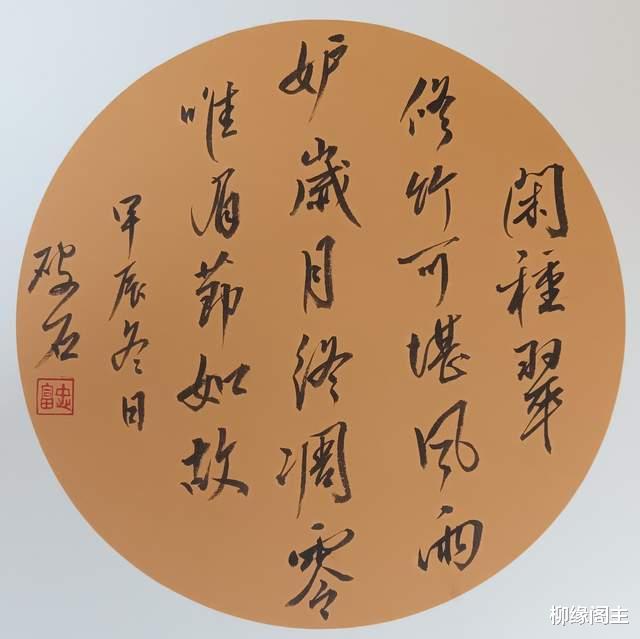 閑種翠
修竹可堪風雨
妒歲月終凋零
唯有節如故
甲辰冬日
破石
忠富
柳缘阁主